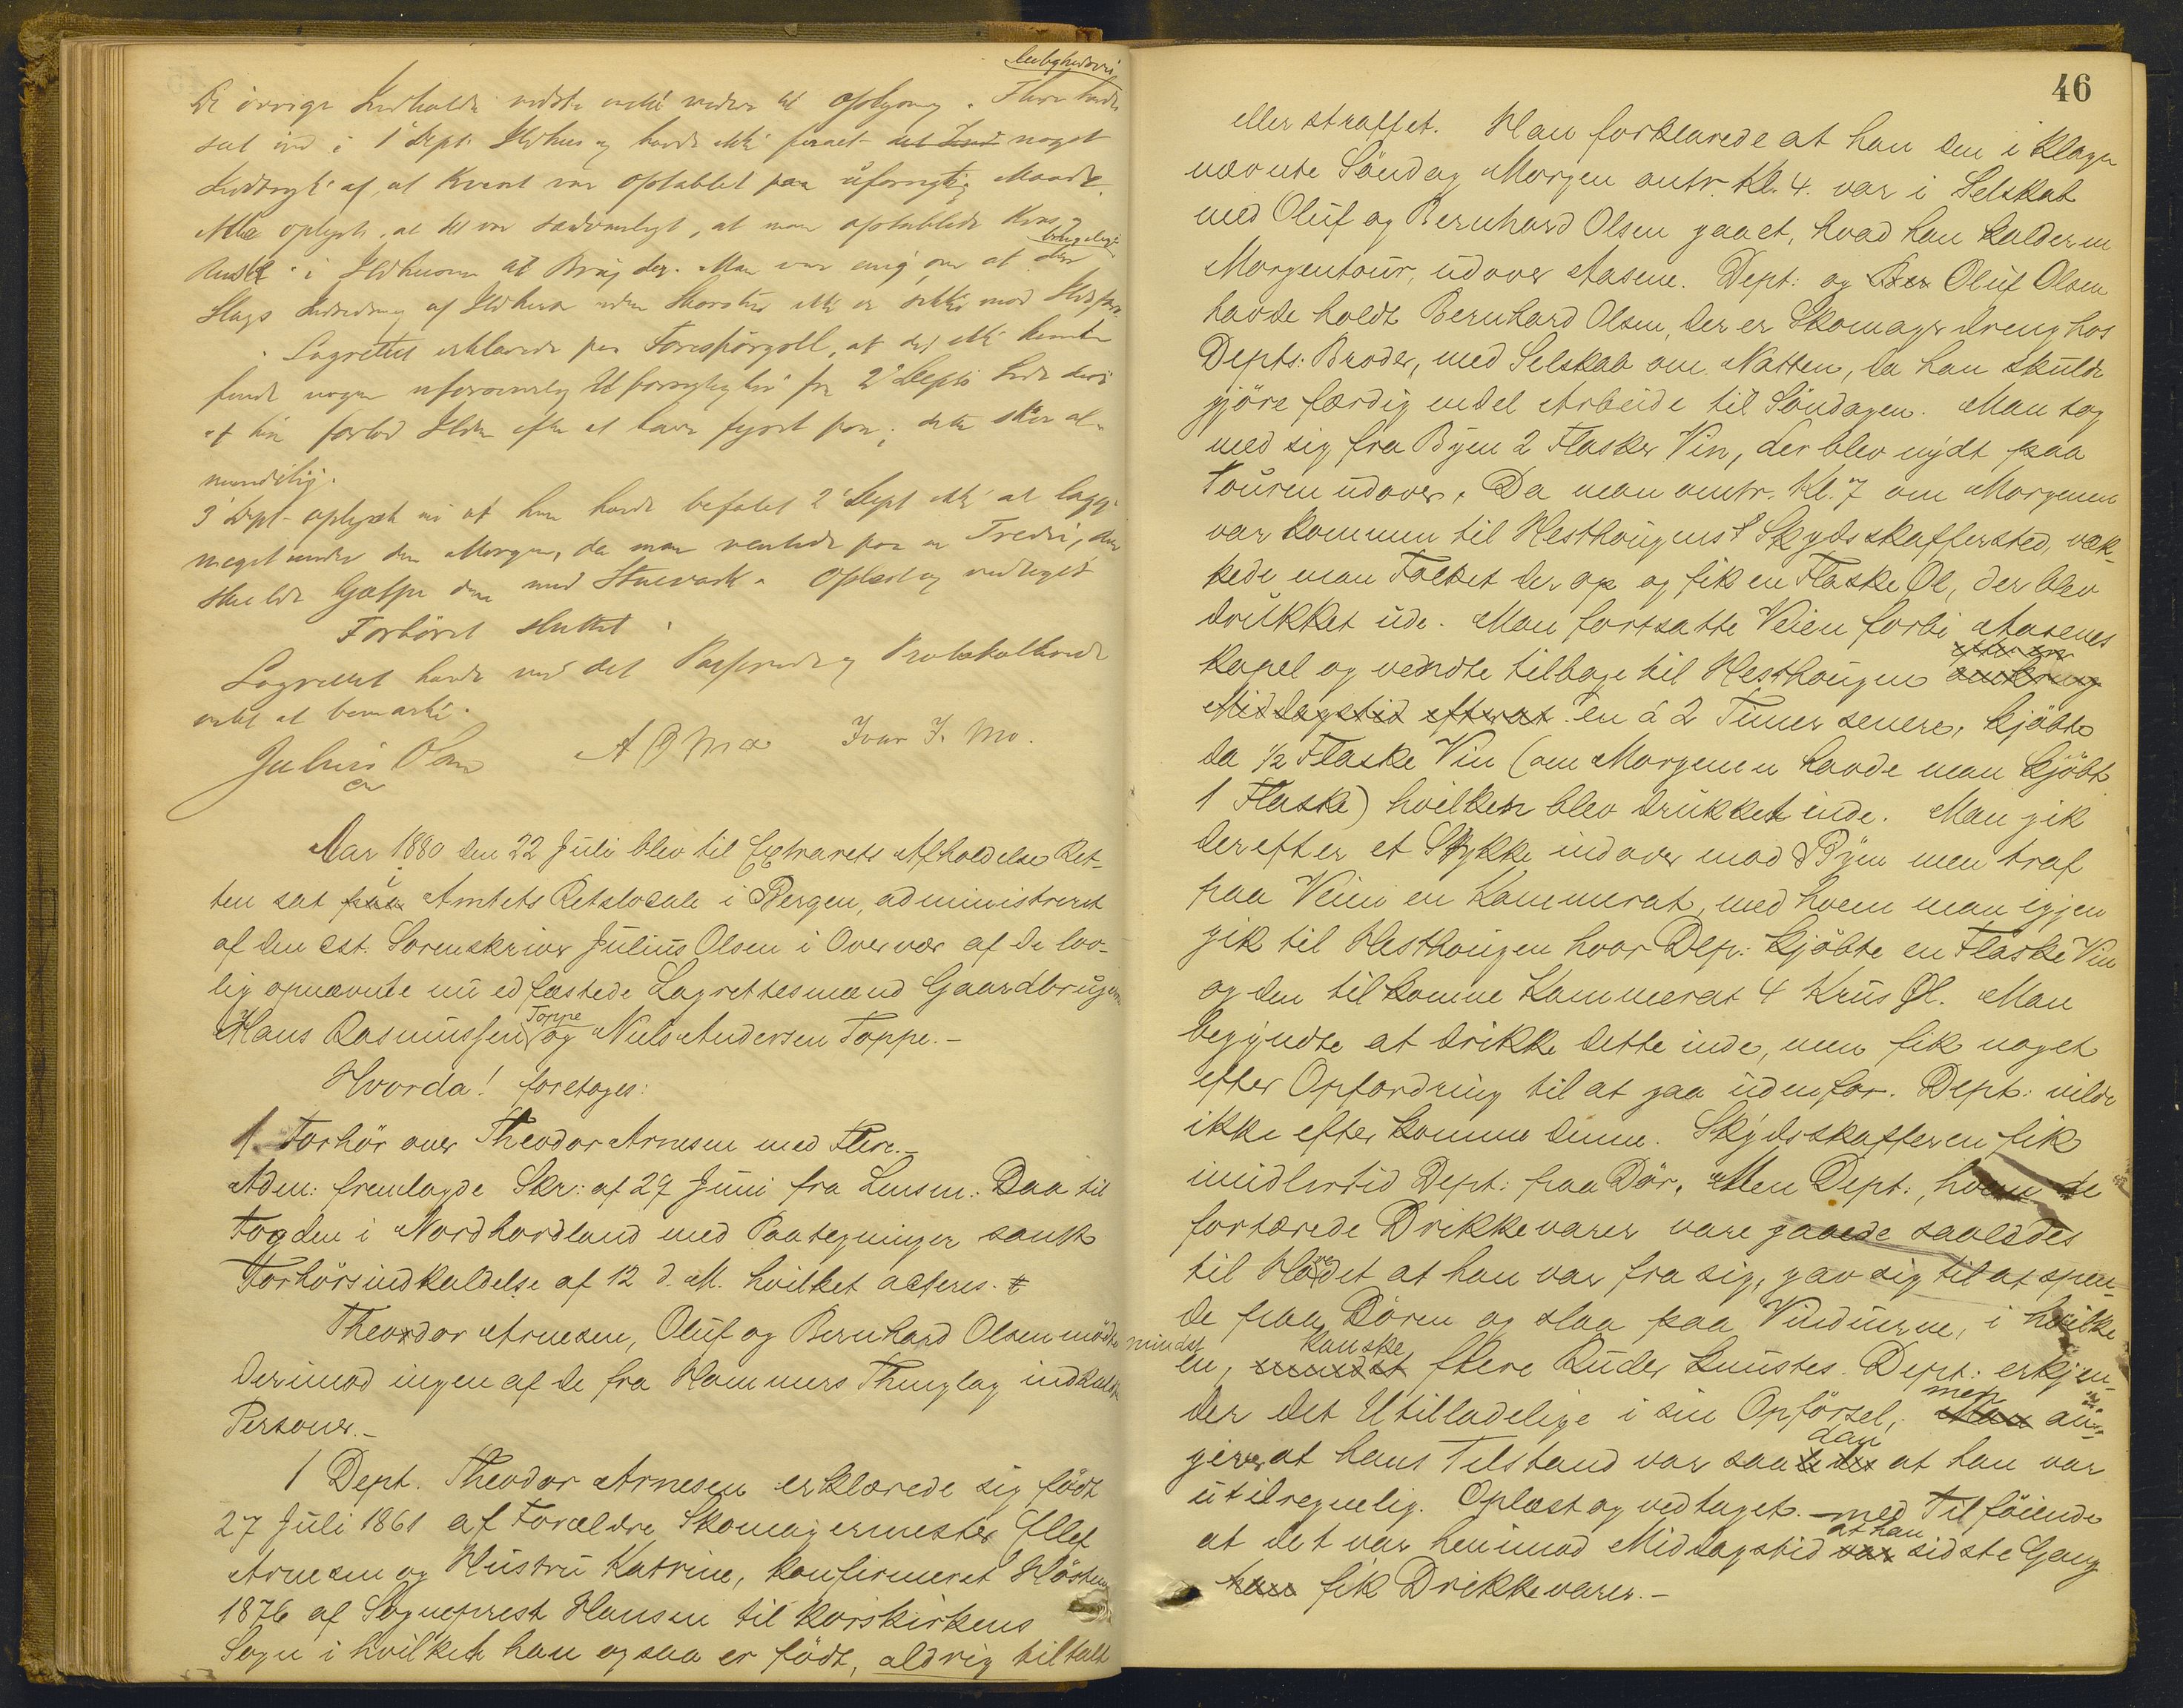 De övrige Indkaldte vidste intet videre til Oplysning. Flere havde leilighedsvis
sat ind i 1 Depts Ildhus og havde ikke faaet noget
Indtryk af, at Kvant var optablet paa uforsigtig Maade.
Alle oplyste, at det var sædvanligt, at man optablede
i Ildhusene at Brug der. Man var enig om at den brugelige
Slags Indredning af Ildhuse uden Skorsten ikke er sikker mod
Lagrettet erklærede paa Forespörgsel, at det ikke kunde
finde nogen uforsvarlig Uforsigtighed fra 2 Depts Side deri
at hun forlod Ilden efter at have fyret paa; dette sker al-
mindelig.
3 Dept. oplyste at hun havde befalet 2 Dept ikke at lægge
meget under den Morgen, da man ventede paa en Tredie, der
skulde hjælpe den med Oplæst og vedtaget
Forhöret sluttet.
Lagrettet havde ved det Passerede og Protokollerede
intet at bemærke.
Julius Olsen A O Mo Ivar J. Mo.
Aar 1880 den 22 Juli blev til Extrarets Afholdelse Ret-
ten sat i Amtets Retslocale i Bergen, administreret
af den cst. Sorenskriver Julius Olsen i Overvær af de lov-
lig opnævnte nu edfæstede Lagrettesmænd Gaardbrugerne
Hans Rasmussen Toppe og Niels Andersen Toppe.-
Hvorda! foretoges:
1. Forhör over Theodor Arnesen med Flere.-
Adm: fremlagde Skr: af 29 Juni fra Lensm: Daa til
Fogden i Nordhordland med Paategninger samt
Forhörsindkaldelse af 12 d. M. hvilket acteres.
Theodor Arnesen, Oluf og Bernhard Olsen mödte
derimod ingen af de fra Hammers Thinglag indkaldte
Personer.-
1 Dept. Theodor Arnesen erklærede sig födt
27 Juli 1861 af Forældre Skomagermester Ellef
Arnesen og Hustru Katrine, konfirmeret Hösten
1876 af Sogneprest Hansen til Korskirkens
Sogn i hvilket han ogsaa er födt, aldrig tiltalt
46
eller straffet. Han forklarede at han den i Klagen
nævnte Söndag Morgen omtr. Kl. 4. var i Selskab
med Oluf og Bernhard Olsen gaaet, hvad han kalder en
Morgentour, udover Aasene. Dept: og Oluf Olsen
havde holdt Bernhard Olsen, der er Skomagerdreng hos
Depts: Broder, med Selskab om Natten, da han skulde
gjöre færdig endel Arbeide til Söndagen. Man tog
med sig fra Byen 2 Flasker Vin, der blev nydt paa
Touren udover. Da man omtr. Kl. 7 om Morgenen
var kommen til Hesthougens Skydsskaffersted, væk-
kede man Folket der op og fik en Flaske Øl, der blev
drukket ude. Man fortsatte Veien forbi Aasenes
Kapel og vendte tilbage til Hesthougen omkring
Middagstid efterat en à 2 Timer senere, kjöbte
da 1/2 Flaske Vin (om Morgenen havde man kjöbt
1 Flaske) hvilken blev drukket inde. Man gik
derefter et Stykke indover mod Byen men traf
paa Veien en Kammerat, med hvem man igjen
gik til Hesthougen hvor Dep: kjöbte en Flaske Vin
og den tilkomne Kammerat 4 Krus Øl. Man
begyndte at drikke dette inde, men fik noget
efter Opfordring til at gaa udenfor. Dept: vilde
ikke efterkomme denne. Skydsskafferen fik
imidlertid Dept: paa Dör. Men Dept:, hvem de
fortærede Drikkevarer vare gaaede saaledes
til Hovedet at han var fra sig, gav sig til at spæn-
de paa Dören og slaa paa Vinduerne, i hvilke
mindst en, kanske flere Ruder knustes. Dept: erkjen-
der det Utilladelige i sin Opförsel, men an-
giver at hans Tilstand var saadan at han var
utilregnelig. Oplæst og vedtaget. - med Tilföiende
at det var henimod Middagstid at han sidste Gang
fik Drikkevarer.-